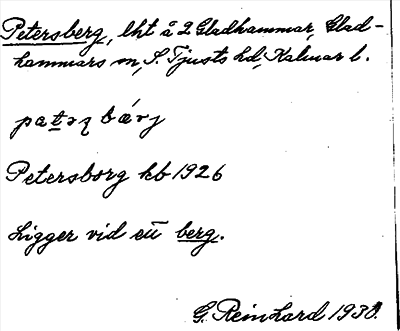 Petersberg, lht å 2 Gladhammar, Glad-
hammars sn, S. Tjusts hd, Kalmar l.
Petersborg kb 1926
Ligger vid ett berg.
G. Reinhard 1930.